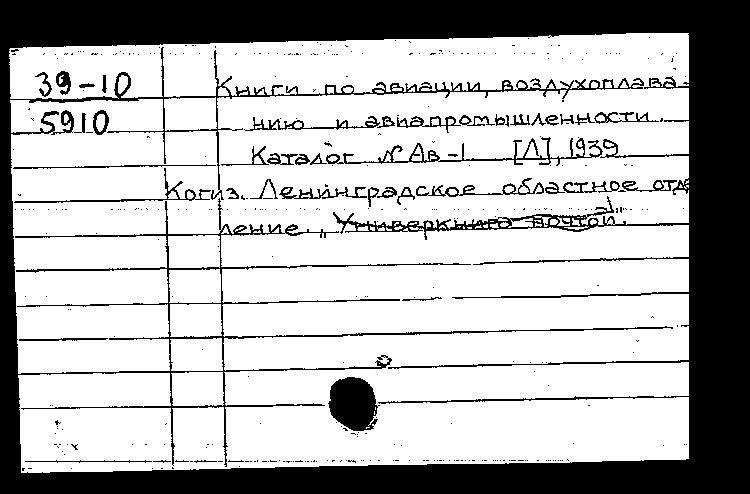 39-10
5910
Книги по авиации, воздухоплава-
нию и авиапромышленности.
Каталог № Ав-1 [Л], 1939
Когиз. Ленинградское областное отде
ление. "Универкнига почтой".